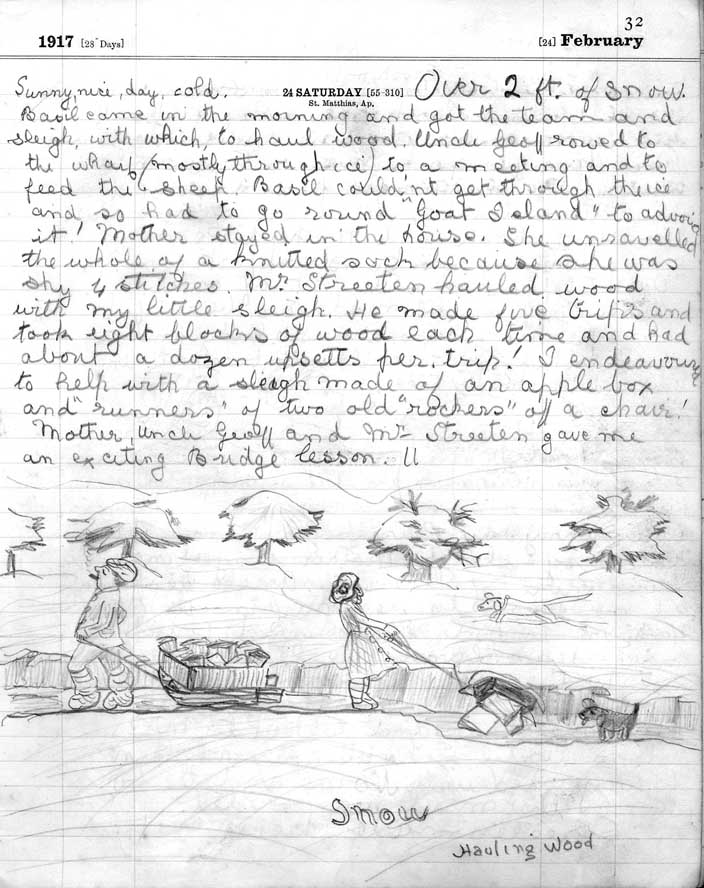 32
1917 [28 Days] [24] February
Sunny, nice, day, cold. 24 SATURDAY [55-310] Over 2 ft. of snow.
St. Matthias, Ap.
Basil came in the morning and got the team and
sleigh, with which, to haul wood. Uncle Geoff rowed to
the wharf (mostly through ice) to a meeting and to
feed the sheep. Basil could'nt get through the ice
and so had to go round "Goat Island" to advoid
it! Mother stayed in the house. She unravelled
the whole of a knitted sock because she was
shy 4 stitches. Mr. Streeten hauled wood
with my little sleigh. He made five trips and
took eight blocks of wood each time and had
about a dozen upsetts per. trip! I endeavoured
to help with a sleigh made of an apple box
and "runners" of two old "rockers" off a chair!
Mother, Uncle Geoff and Mr Streeten gave me
an exciting Bridge lesson. !!
Snow
Hauling Wood